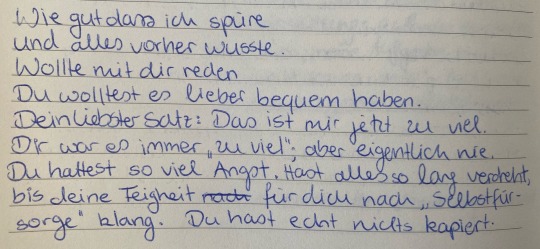 Wie gut dass ich spüre
und alles vorher wusste.
Wollte mit dir reden
Du wolltest es lieber bequem haben.
Dein liebster Satz: Das ist mir jetzt zu viel.
Dir war es immer „zu viel", aber eigentlich nie.
Du hattest so viel Angst. Hast alles so lang verdreht,
bis deine Feigheit nach für dich nach „Selbstfür-
sorge" klang. Du hast echt nichts kapiert.